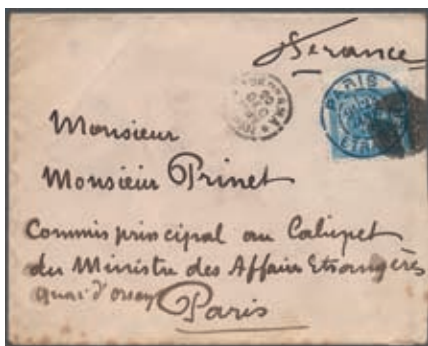 France
PARIS
ETRANGER
Monsieur
Monsieur Prinet
Commis principal au Cabinet
du Ministre des Affaires Etrangères
quai d'orsay
Paris